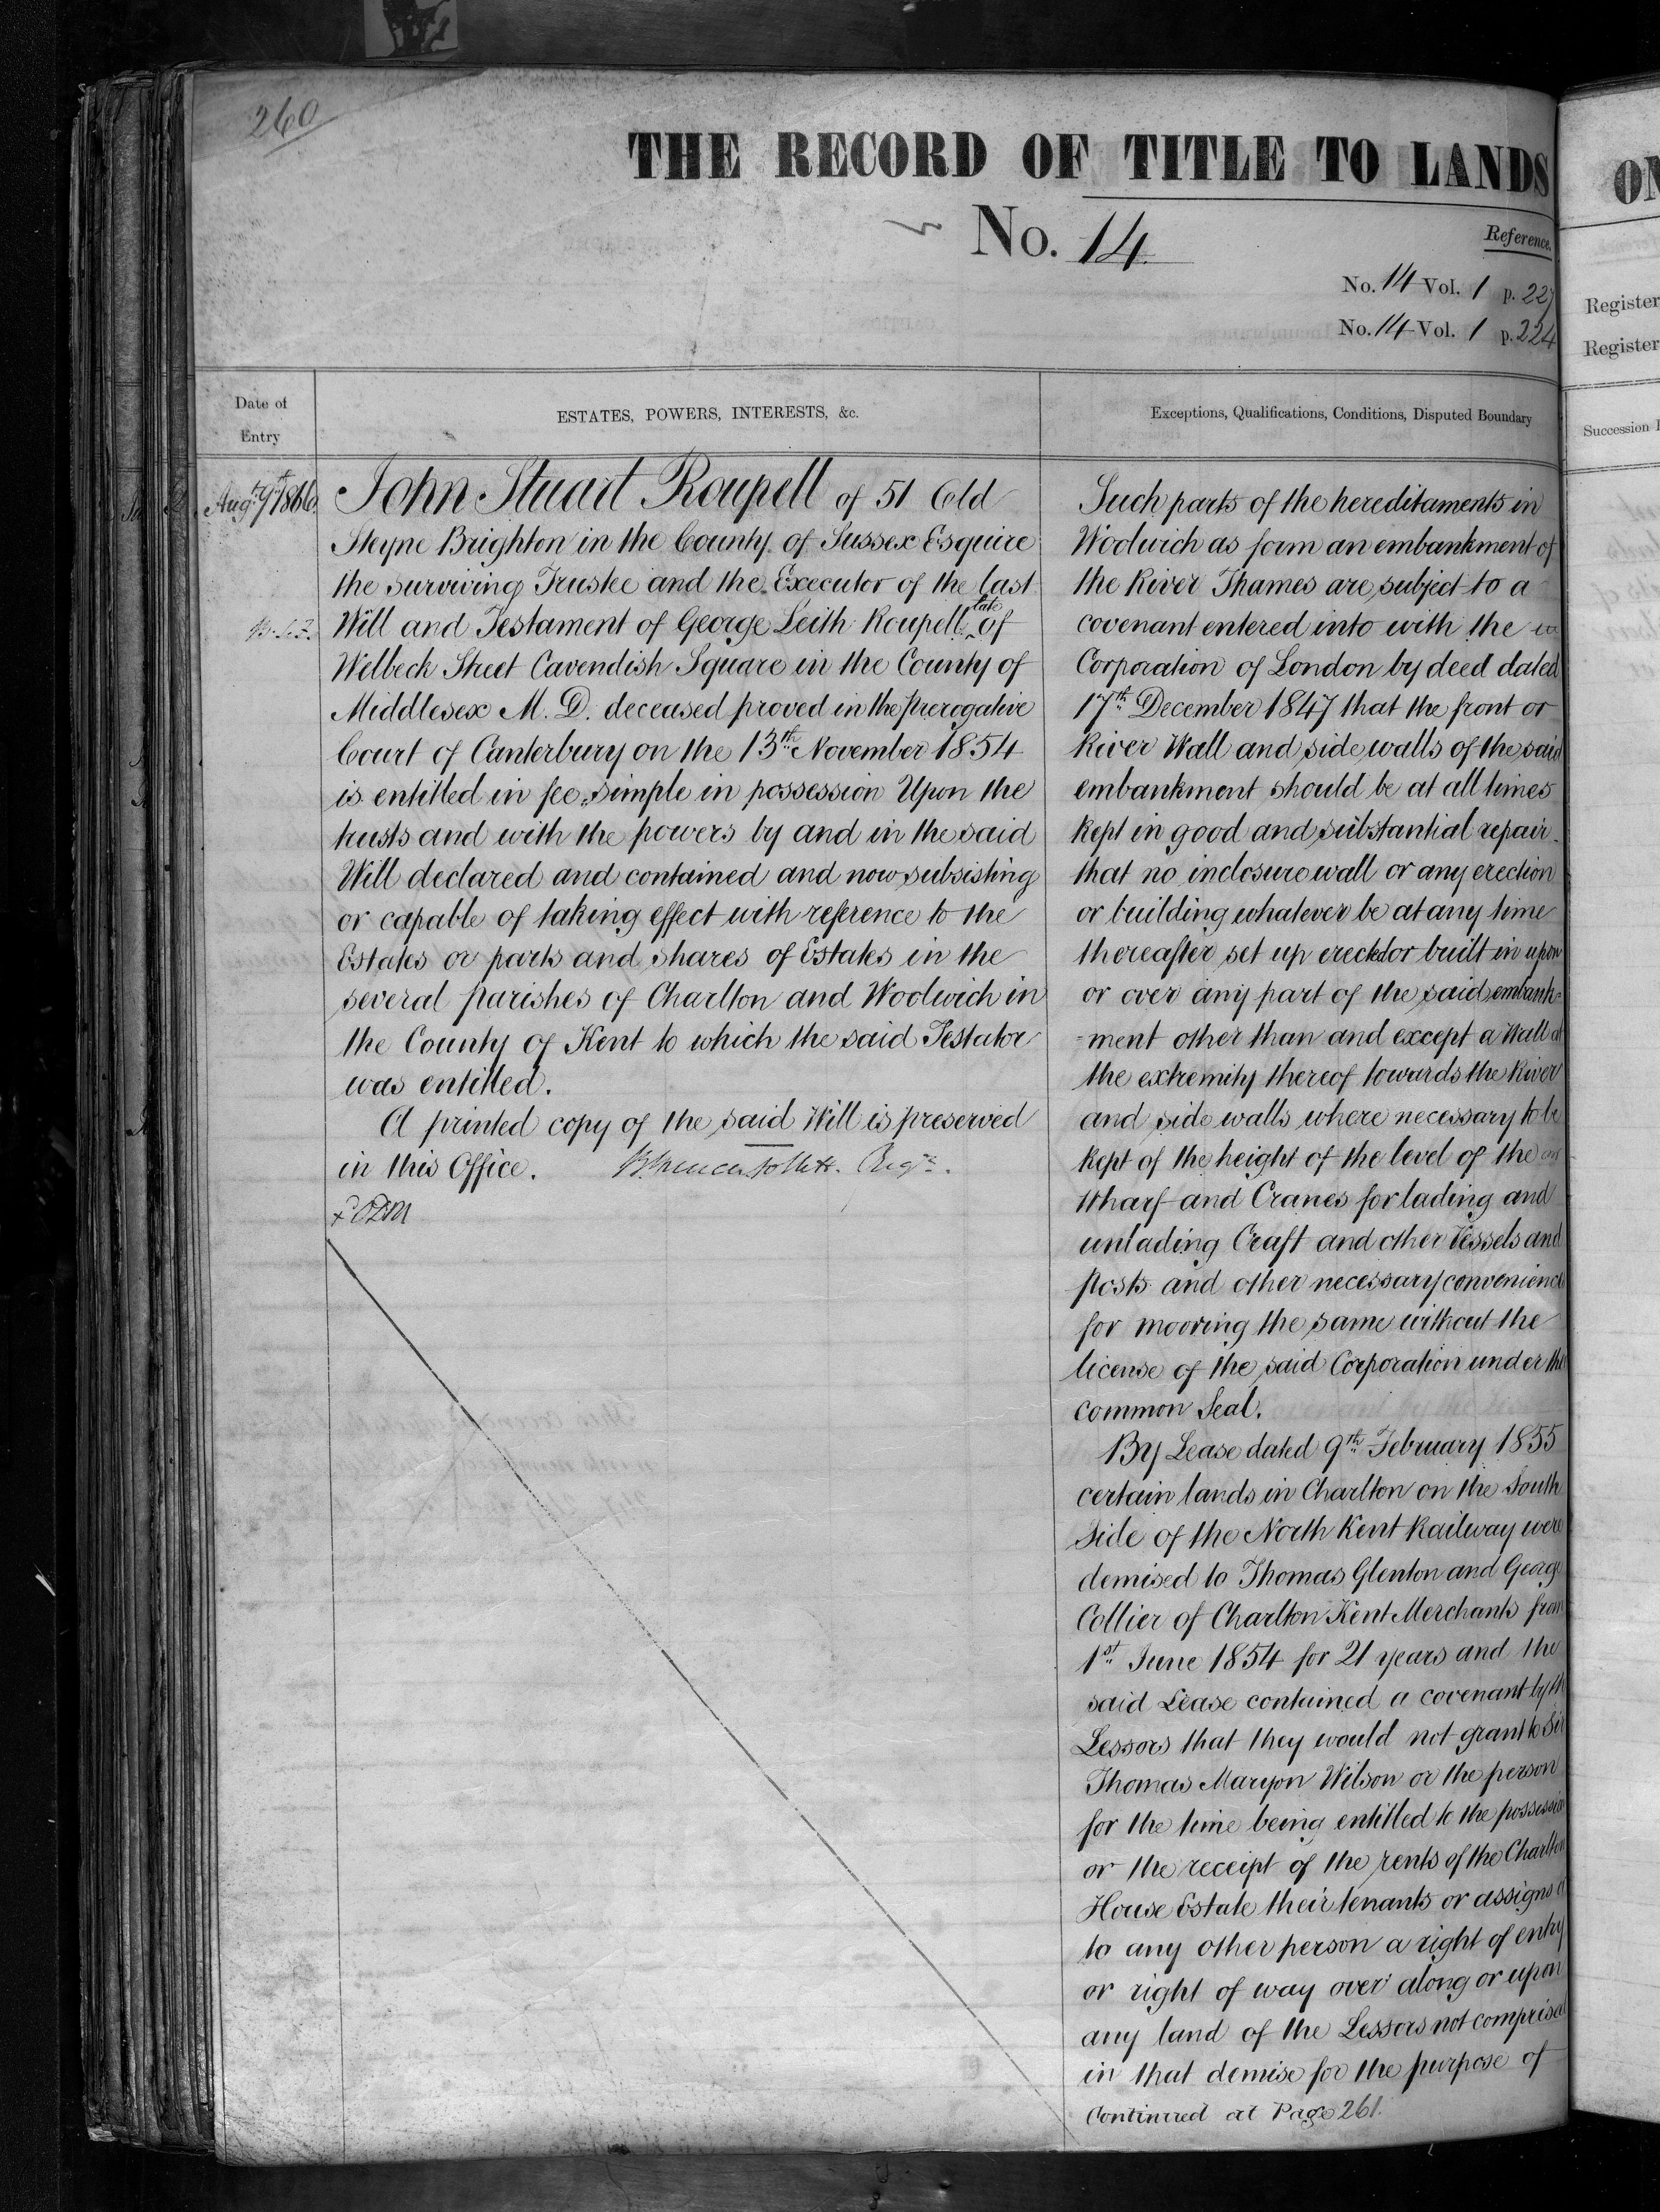 260
THE RECORD OF TITLE TO LANDS
No. 14
Reference.
No. 14 Vol. 1 p. 227
No. 14 Vol. 1 p. 224
Date of
Entry
ESTATES, POWERS, INTERESTS, &c.
Augt. 9th 1866
John Stuart Roupell of 51 Old
Steyne Brighton in the County of Sussex Esquire
the surviving Trustee and the Executor of the last
Will and Testament of George Leith Roupell late of
Welbeck Street Cavendish Square in the County of
Middlesex M. D. deceased proved in the Prerogative
Court of Canterbury on the 13th November 1854
is entitled in fee simple in possession Upon the
trusts and with the powers by and in the said
Will declared and contained and now subsisting
or capable of taking effect with reference to the
Estates or parts and shares of Estates in the
several parishes of Charlton and Woolwich in
the County of Kent to which the said Testator
was entitled.
A printed copy of the said Will is preserved
in this Office.
Exceptions, Qualifications, Conditions, Disputed Boundary
Such parts of the hereditaments in
Woolwich as form an embankment of
the River Thames are subject to a
covenant entered into with the
Corporation of London by deed dated
17th December 1847 that the front or
River Wall and side walls of the said
embankment should be at all times
kept in good and substantial repair
that no inclosure wall or any erection
or building whatever be at any time
thereafter set up erected or built in upon
or over any part of the said embank-
-ment other than and except a Wall at
the extremity thereof towards the River
and side walls where necessary to be
kept of the height of the level of the
Wharf and Cranes for lading and
unlading Craft and other Vessels and
Posts and other necessary convenience
for mooring the same without the
license of the said Corporation under the
common Seal.
By Lease dated 9th February 1855
certain lands in Charlton on the South
side of the North Kent Railway were
demised to Thomas Glenton and George
Collier of Charlton Kent Merchants from
1st June 1854 for 21 years and the
said Lease contained a covenant by the
Lessors that they would not grant to Sir
Thomas Maryon Wilson or the person
for the time being entitled to the possession
or the receipt of the rents of the Charlton
House Estate their tenants or assigns or
to any other person a right of entry
or right of way over along or upon
any land of the Lessors not comprised
in that demise for the purpose of
Continued at Page 261.
ON
Register
Register
Succession